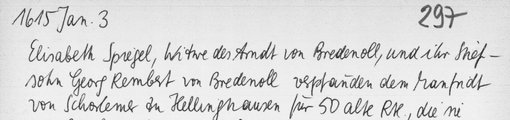 1615 Jan. 3 297
Elisabeth Spiegel, Witwe des Arndt von Bredenoll, und ihr Stief-
sohn Georg Rembert von Bredenoll verpfänden dem Manfridt
von Schorlemer zu Hellinghausen für 50 alte Rtl., die sie